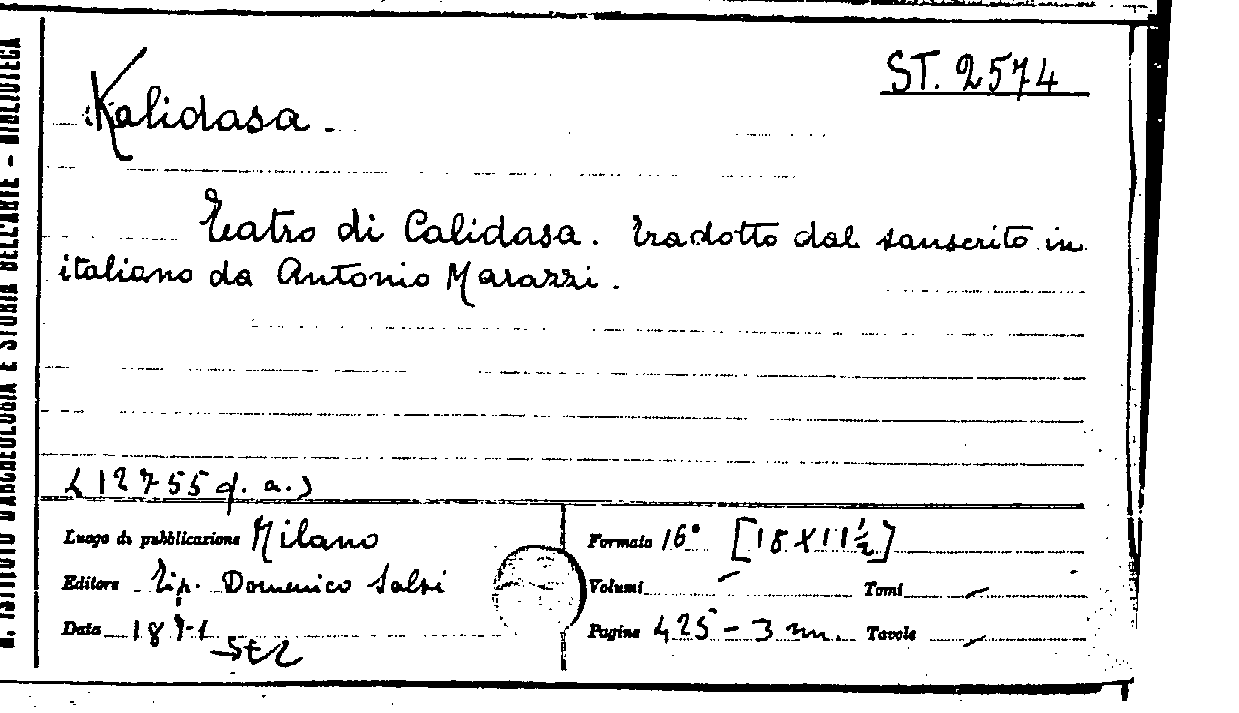 ST. 2574
Kalidasa.
Teatro di Calidasa. Tradotto dal sanscrito in
italiano da Antonio Marazzi.
(12755 d. a.)
Luogo di pubblicazione Milano
Editore Tip. Domenico Salvi
Data 1871
Formato 16° [18 X 11 ½]
Volumi / Tomi /
Pagine 425 - 3 nn. Tavole /
R. ISTITUTO D'ARCHEOLOGIA E STORIA DELL'ARTE - BIBLIOTECA